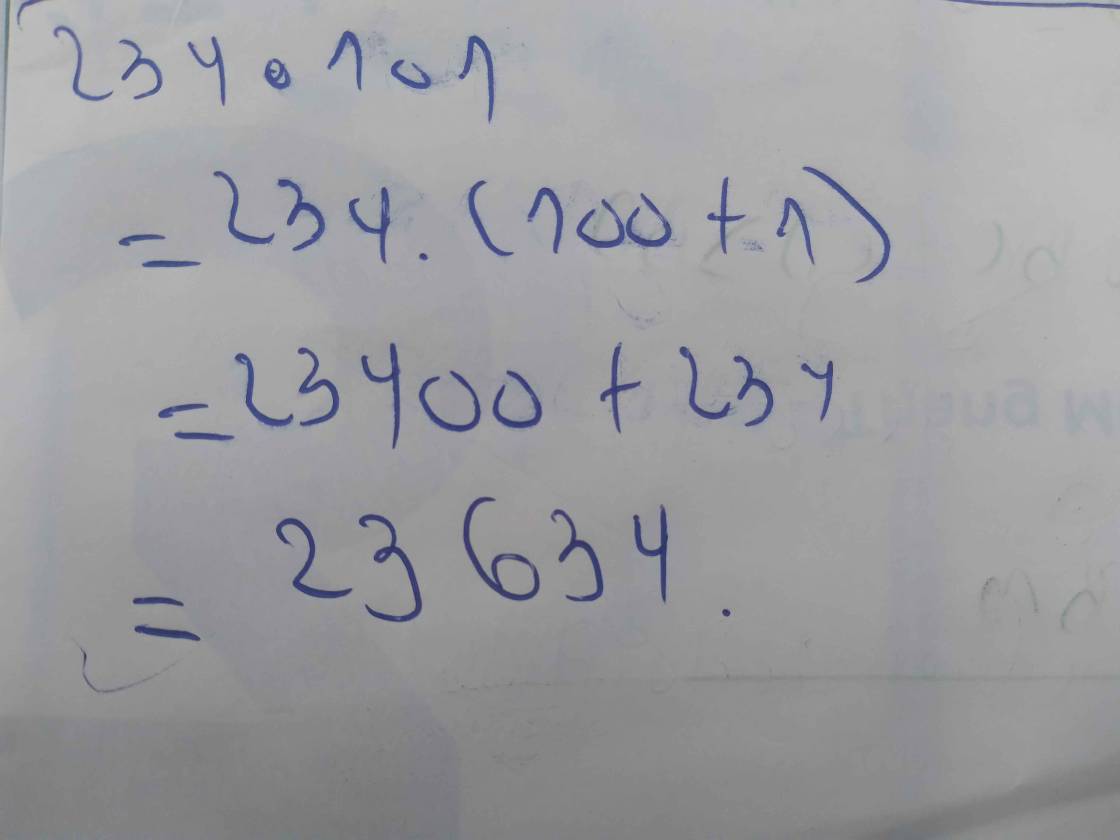 234 . 101
= 234. (100 + 1)
= 23400 + 234
= 23 634.